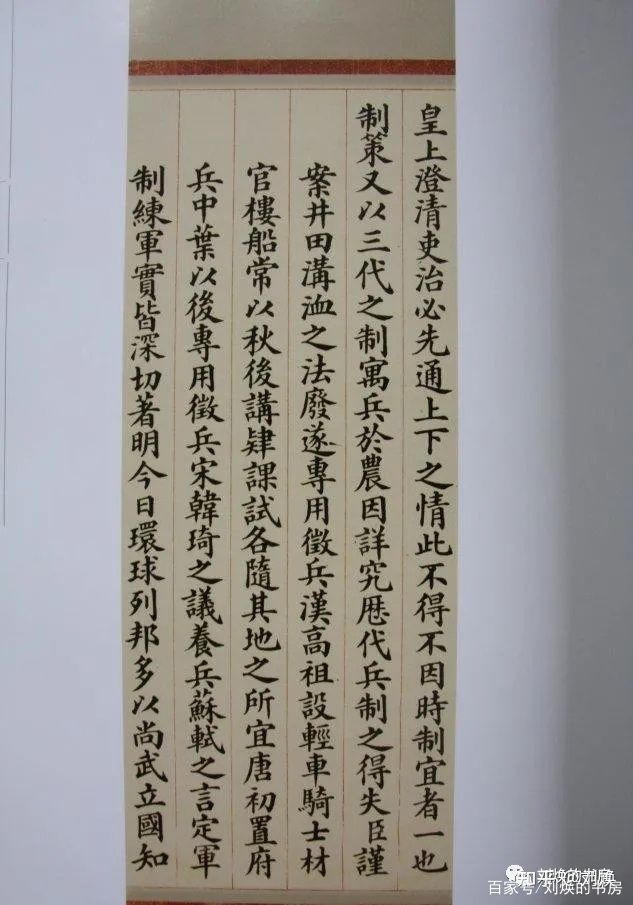 皇上澄清吏治必先通上下之情此不得不因時制宜者一也
制策又以三代之制寓兵於農因詳究歷代兵制之得失臣謹
案井田溝洫之法廢遂專用徵兵漢高祖設輕車騎士材
官樓船常以秋後講肄課試各隨其地之所宜唐初置府
兵中葉以後專用徵兵宋韓琦之議養兵蘇軾之言定軍
制練軍實皆深切著明今日環球列邦多以尚武立國知
百家号/刘焕的书房